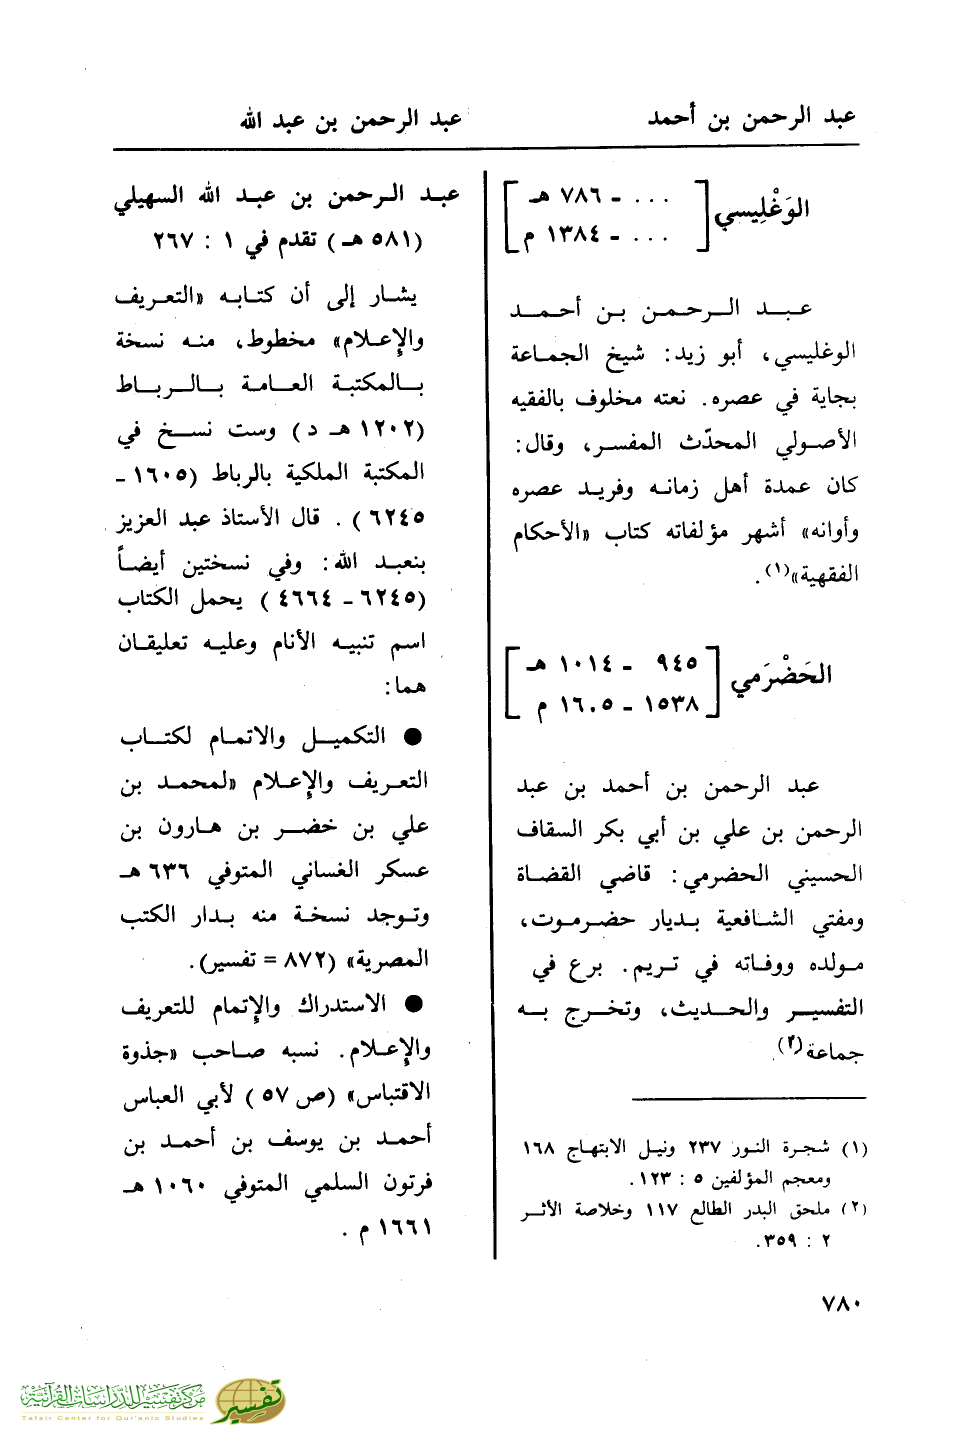 عبد الرحمن بن أحمد
عبد الرحمن بن عبد الله
الوَغْلِيسي [ . . . - ٧٨٦ هـ
. . . - ١٣٨٤ م ]
عبد الرحمن بن أحمد
الوغليسي، أبو زيد: شيخ الجماعة
بجاية في عصره. نعته مخلوف بالفقيه
الأصولي المحدّث المفسر، وقال:
كان عمدة أهل زمانه وفريد عصره
وأوانه» أشهر مؤلفاته كتاب «الأحكام
الفقهية»(١).
الحَضْرَمي [ ٩٤٥ - ١٠١٤ هـ
١٥٣٨ - ١٦٠٥ م ]
عبد الرحمن بن أحمد بن عبد
الرحمن بن علي بن أبي بكر السقاف
الحسيني الحضرمي: قاضي القضاة
ومفتي الشافعية بديار حضرموت،
مولده ووفاته في تريم. برع في
التفسير والحديث، وتخرج به
جماعة(٢).
(١) شجرة النور ٢٣٧ ونيل الابتهاج ١٦٨
ومعجم المؤلفين ٥ : ١٢٣.
(٢) ملحق البدر الطالع ١١٧ وخلاصة الأثر
٢ : ٣٥٩.
عبد الرحمن بن عبد الله السهيلي
(٥٨١ هـ) تقدم في ١ : ٢٦٧
يشار إلى أن كتابه «التعريف
والإعلام» مخطوط، منه نسخة
بالمكتبة العامة بالرباط
(١٢٠٢ هـ د) وست نسخ في
المكتبة الملكية بالرباط (١٦٠٥ -
٦٢٤٥) . قال الأستاذ عبد العزيز
بنعبد الله: وفي نسختين أيضاً
(٦٢٤٥ - ٤٦٦٤) يحمل الكتاب
اسم تنبيه الأنام وعليه تعليقان
هما:
● التكميل والاتمام لكتاب
التعريف والإعلام «لمحمد بن
علي بن خضر بن هارون بن
عسكر الغساني المتوفي ٦٣٦ هـ
وتوجد نسخة منه بدار الكتب
المصرية» (٨٧٢ = تفسير).
● الاستدراك والإتمام للتعريف
والإعلام. نسبه صاحب «جذوة
الاقتباس» (ص ٥٧) لأبي العباس
أحمد بن يوسف بن أحمد بن
فرتون السلمي المتوفي ١٠٦٠ هـ
١٦٦١ م .
٧٨٠
مركز تفسير للدراسات القرآنية
Tafsir Center for Qur'anic Studies
تفسير